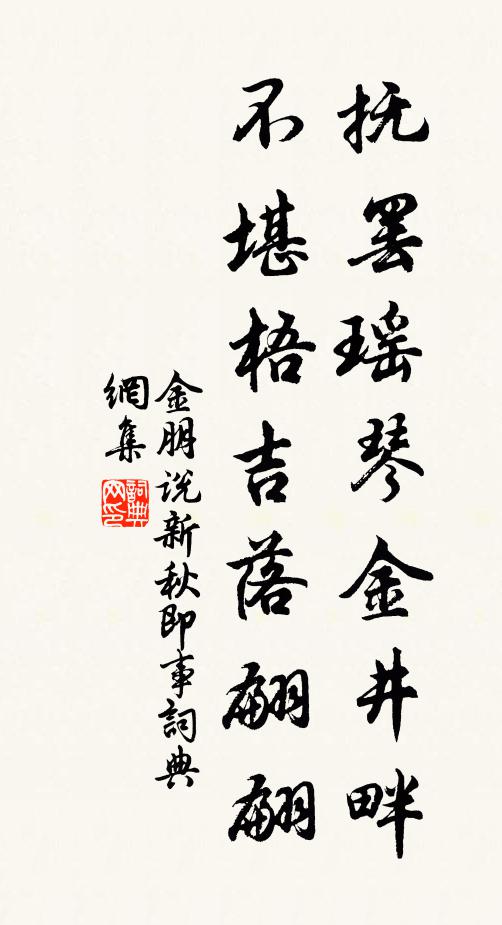 抚罢瑶琴金井畔
不堪梧吉落翩翩
金朋说新秋即事詞典
網集
詞典
网印